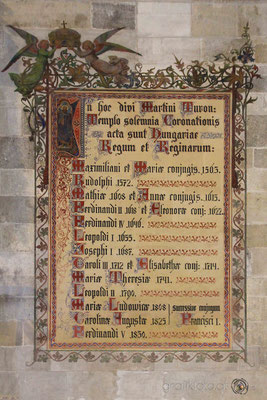 In hoc divi Martini Turon:
Templo solemnia Coronationis
acta sunt Hungariae
Regum et Reginarum:
Maximiliani et Mariae conjugis. 1563.
Rudolphi 1572.
Mathiae 1608 et Annae conjugis. 1613.
Ferdinandi II. 1618 et Eleonorae conj: 1622.
Ferdinandi IV. 1646.
Leopoldi I. 1655.
Josephi I. 1687.
Caroli III. 1712 et Elisabethae conj. 1714.
Mariae Theresiae 1741.
Leopoldi II. 1790.
Mariae Ludovicae 1808 successive conjugum
Carolinae Augustae 1825 Francisci I.
Ferdinandi V. 1830.